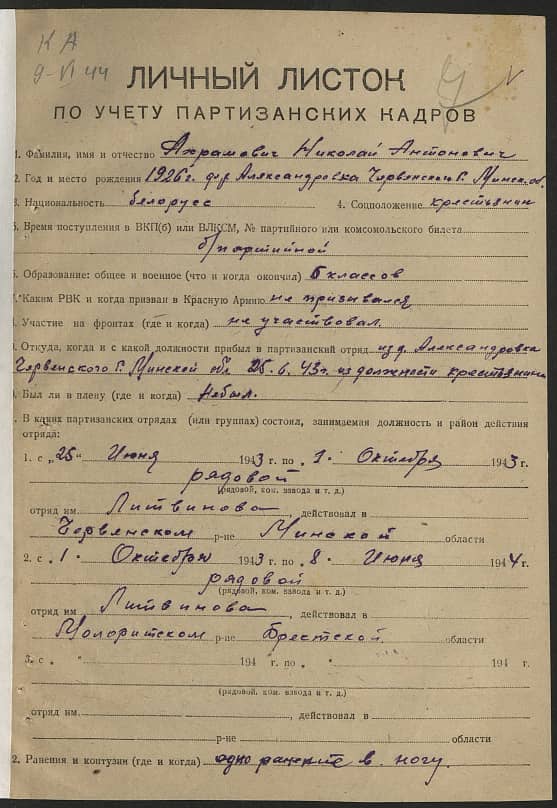 КА
9-VI 44
ЛИЧНЫЙ ЛИСТОК
ПО УЧЕТУ ПАРТИЗАНСКИХ КАДРОВ
1. Фамилия, имя и отчество Ахрамович Николай Антонович
2. Год и место рождения 1926 г. дер Александровка Червенского р. Минск. об.
3. Национальность белорусс 4. Соцположение крестьянин
5. Время поступления в ВКП(б) или ВЛКСМ, № партийного или комсомольского билета
б/партийной
6. Образование: общее и военное (что и когда окончил) 5 классов
7. Каким РВК и когда призван в Красную Армию не призывался
8. Участие на фронтах (где и когда) не участвовал.
9. Откуда, когда и с какой должности прибыл в партизанский отряд из д. Александровка
Червенского р. Минской обл 25. 6. 43 г. из должности крестьянин
Был ли в плену (где и когда) Небыл.
В каких партизанских отрядах (или группах) состоял, занимаемая должность и район действия
отряда:
1. с „25" Июня 1943 г. по „1. Октября 1943 г.
рядовой
(рядовой, ком. взвода и т. д.)
отряд им Литвинова, действовал в
Червенском р-не Минской области
2. с „1. Октября 1943 г. по „8. Июня 1944 г.
рядовой
(рядовой, ком. взвода и т. д.)
отряд им Литвинова, действовал в
Малоритском р-не Брестской области
3. с „ " 194 г. по „ " 194 г.
(рядовой, ком. взвода и т. д.)
отряд им. , действовал в
р-не области
2. Ранения и контузии (где и когда) одно ранение в ногу.